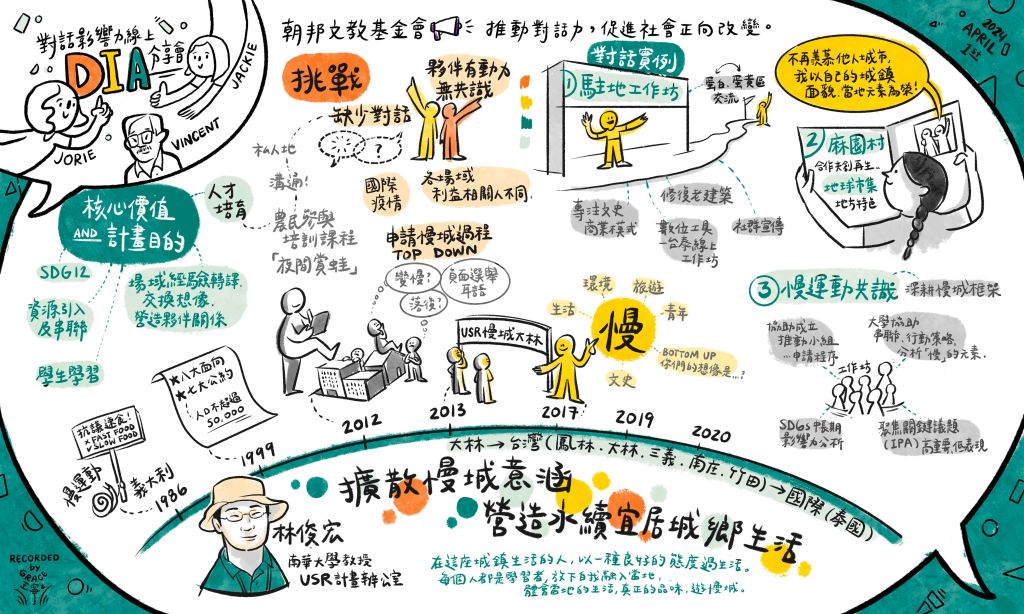 對話影響力線上
DIA 分享會
JORIE
VINCENT
JACKIE
朝邦文教基金會 推動對話力，促進社會正向改變。
2024
APRIL
1st
核心價值
AND 計畫目的
人才
培育
SDG12
資源引入
及串聯
學生學習
場域經驗轉譯.
交換想像.
營造夥伴關係
挑戰
缺少對話
?
夥伴有動力
無共識
私人地
溝通!
農民參與
培訓課程
「夜間賞蛙」
國際
疫情
各場域
利益相關人不同
申請慢城過程
TOP DOWN
變慢?
負面選舉
耳語
落後?
對話實例
① 駐地工作坊
蛋白.蛋黃區
交流
專注文史
商業模式
修復老建築
數位工具
一台泰線上
工作坊
社群宣傳
不再羨慕他人城市,
我以自己的城鎮
面貌.當地元素為榮!
② 麻園村
合作共創再生...
地球市集
地方特色
③ 慢運動共識 深耕慢城框架
協助成立
推動小組
...申請程序
大學協助
串聯.行動策略.
分析"慢"的元素.
工作坊
SDGs中長期
影響力分析
聚焦關鍵議題
(IPA)高重要.低表現
慢
環境
旅遊
生活
青年
文史
BOTTOM UP
你們的想像是...?
USR慢城大林
抗議速食!
×FAST FOOD
✓SLOW FOOD
慢運動
義大利
★八大面向
★七大公約
人口不超過
50,000
1986
1999
2012
2013
2017
2019
2020
大林→台灣(鳳林、大林、三義、南庄、竹田)→國際(泰國)
擴散慢城意涵
營造永續宜居城鄉生活
林俊宏
南華大學教授
USR計畫辦公室
在這座城鎮生活的人，以一種良好的態度過生活。
每個人都是學習者，放下自我融入當地，
體會當地的生活，真正的品味.遊慢城。
RECORDED
by
GRACE